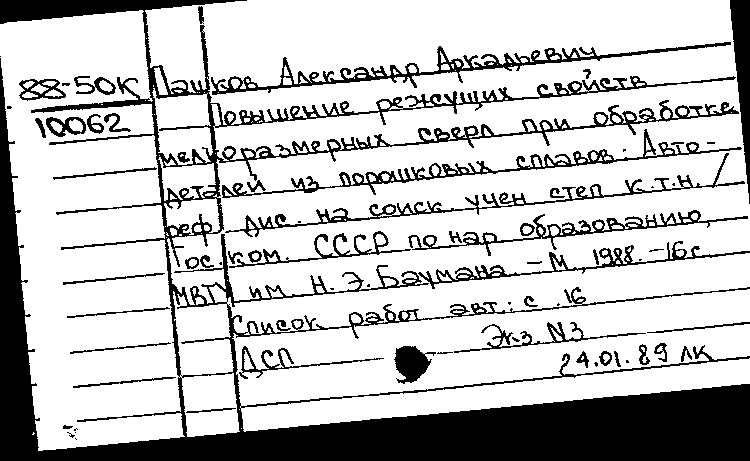 88-50К Пашков, Александр Аркадьевич
10062 Повышение режущих свойств
мелкоразмерных сверл при обработке
деталей из порошковых сплавов: Авто-
реф. дис. на соиск учен степ к.т.н. /
Гос.ком. СССР по нар образованию,
МВТУ им. Н. Э. Баумана. - М., 1988. - 16с
Список работ авт.: с. 16
Экз. N3
ДСП
24.01.89 ЛК